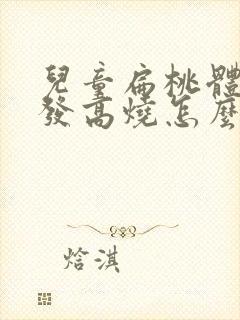 兒童扁桃體
發高燒怎麼
焓淇